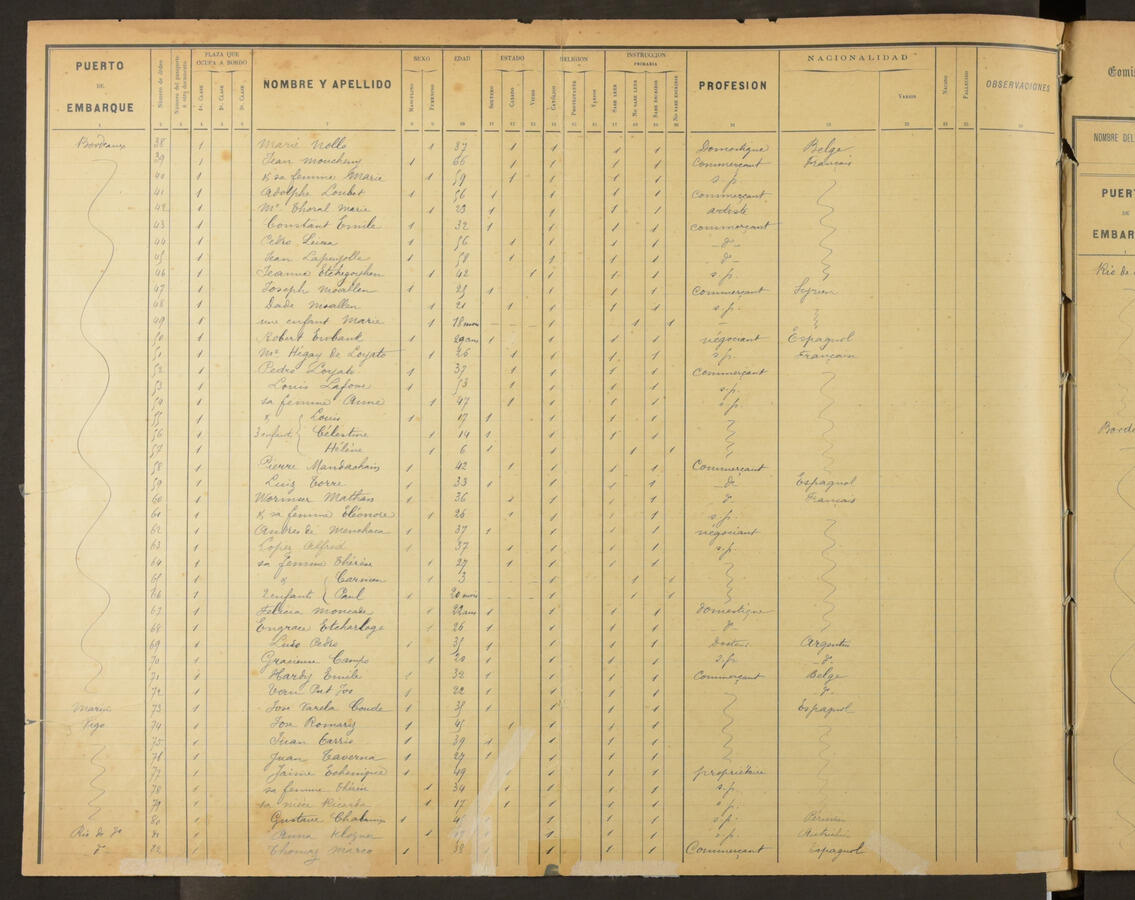 PUERTO DE EMBARQUE
Número de órden
Número del pasaporte u otro documento
PLAZA QUE OCUPA A BORDO
1ª CLASE 2ª CLASE 3ª CLASE
NOMBRE Y APELLIDO
SEXO
MASCULINO FEMENINO
EDAD
ESTADO
SOLTERO CASADO VIUDO
RELIGION
CATÓLICO PROTESTANTE VARIOS
INSTRUCCION PRIMARIA
SABE LEER NO SABE LEER SABE ESCRIBIR NO SABE ESCRIBIR
PROFESION
NACIONALIDAD
VARIOS
NACIDO FALLECIDO
OBSERVACIONES
Bordeaux 38 1 Marie Nollo 1 37 1 1 1 1 Domestique Belge
39 1 Jean 1 66 1 1 1 1 Commerçant Français
40 1 & sa femme Marie 1 59 1 1 1 1 s.p.
41 1 Adolphe Loubet 1 56 1 1 1 1 Commerçant
42 1 Mme Thoral Marie 1 23 1 1 1 1 artiste
43 1 Constant Emile 1 32 1 1 1 1 commerçant
44 1 Pedro 1 56 1 1 1 1 d°
45 1 Jean 1 58 1 1 1 1 d°
46 1 Jeanne Etchegoyhen 1 42 1 1 1 1 s.p.
47 1 Joseph Moallem 1 25 1 1 1 1 Commerçant Syrien
48 1 Dade Moallem 1 21 1 1 1 1 s.p.
49 1 une enfant Marie 1 18 mois 1 1 1
50 1 Robert Ewbank 1 29 ans 1 1 1 1 négociant Espagnol
51 1 Mme de Loyato 1 26 1 1 1 1 s.p. Française
52 1 Pedro Loyato 1 37 1 1 1 1 Commerçant
53 1 Louis 1 53 1 1 1 1 s.p.
54 1 sa femme Anne 1 47 1 1 1 1 s.p.
55 1 & Louis 1 17 1 1 1 1
56 1 3 enfants Célestine 1 14 1 1 1 1
57 1 Hélène 1 6 1 1 1 1
58 1 Pierre 1 42 1 1 1 1 Commerçant
59 1 Luiz Torre 1 33 1 1 1 1 d° Espagnol
60 1 Wormser Mathan 1 36 1 1 1 1 d° Français
61 1 & sa femme Eléonore 1 26 1 1 1 1 s.p.
62 1 Andres de Menchaca 1 37 1 1 1 1 négociant
63 1 Lopez Alfred 1 37 1 1 1 1 s.p.
64 1 sa femme Thérèse 1 27 1 1 1 1
65 1 & Carmen 1 3 1 1 1
66 1 2 enfants Paul 1 20 mois 1 1 1
67 1 Felicia Moncade 1 22 ans 1 1 1 1 domestique
68 1 Engrace 1 26 1 1 1 1 d°
69 1 Pedro 1 35 1 1 1 1 Docteur Argentin
70 1 Gracienne Campo 1 20 1 1 1 1 s.p. d°
71 1 Hardy Emile 1 32 1 1 1 1 Commerçant Belge
72 1 1 22 1 1 1 1 d°
Marin 73 1 Jose Varela Conde 1 35 1 1 1 1 Espagnol
Vigo 74 1 Jose Romariz 1 45 1 1 1 1
75 1 Juan 1 39 1 1 1 1
76 1 Juan Taverna 1 27 1 1 1 1
77 1 Jaime Echenique 1 49 1 1 1 1 propriétaire
78 1 sa femme 1 34 1 1 1 1 s.p.
79 1 sa nièce Ricarda 1 17 1 1 1 1 s.p.
80 1 Gustave 1 1 1 1 s.p.
Rio de Jo 81 1 Anna 1 1 1 1 s.p.
d° 82 1 Thomas Marco 1 38 1 1 1 1 Commerçant Espagnol
NOMBRE DEL
PUERT
DE
EMBAR
Rio de
Borde